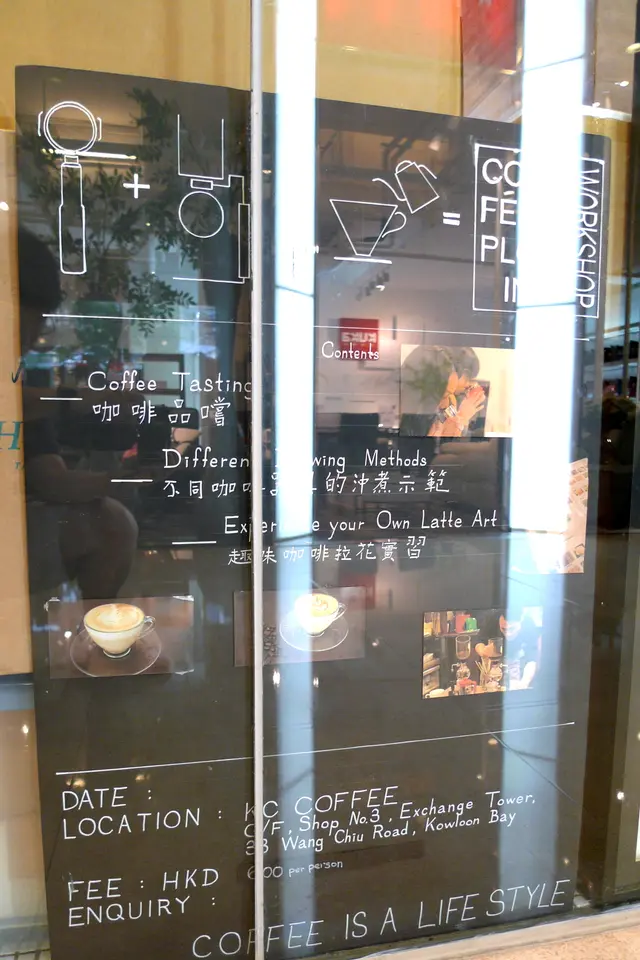 WORKSHOP
IN
Contents
Coffee Tasting
咖啡品嚐
Methods
不同咖 的沖煮示範
your Own Latte Art
趣味咖啡拉花實習
DATE :
LOCATION : KC COFFEE
Shop No.3, Exchange Tower,
Wang Chiu Road, Kowloon Bay
FEE : HKD per person
ENQUIRY :
COFFEE IS A LIFE STYLE